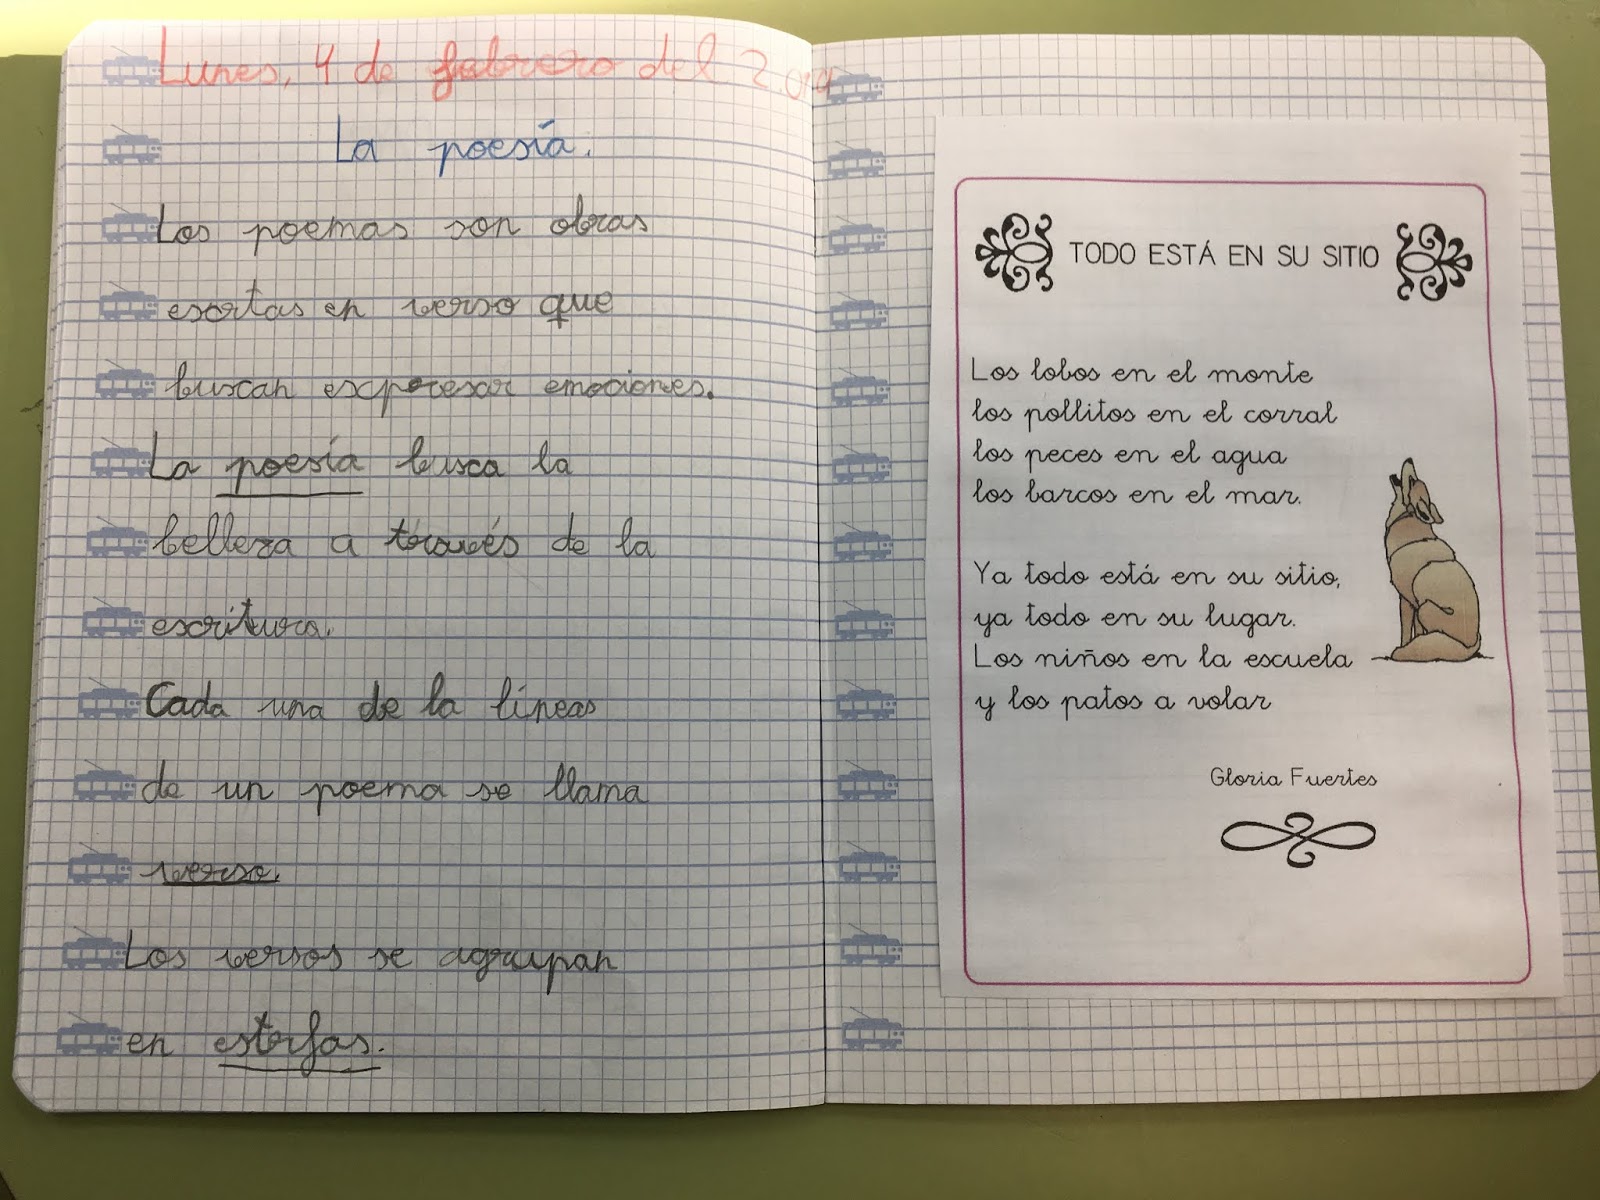 Lunes, 4 de febrero del 2.019
La poesía.
Los poemas son obras
escritas en verso que
buscan expresar emociones.
La poesía busca la
belleza a través de la
escritura.
Cada una de la líneas
de un poema se llama
verso.
Los versos se agrupan
en estrfas.
TODO ESTÁ EN SU SITIO
Los lobos en el monte
los pollitos en el corral
los peces en el agua
los barcos en el mar.
Ya todo está en su sitio,
ya todo en su lugar.
Los niños en la escuela
y los patos a volar
Gloria Fuertes